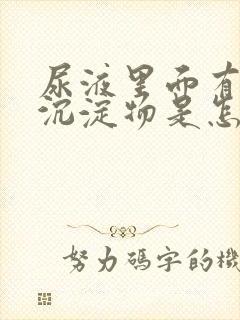 尿液里面有
沉淀物是怎
努力碼字的機